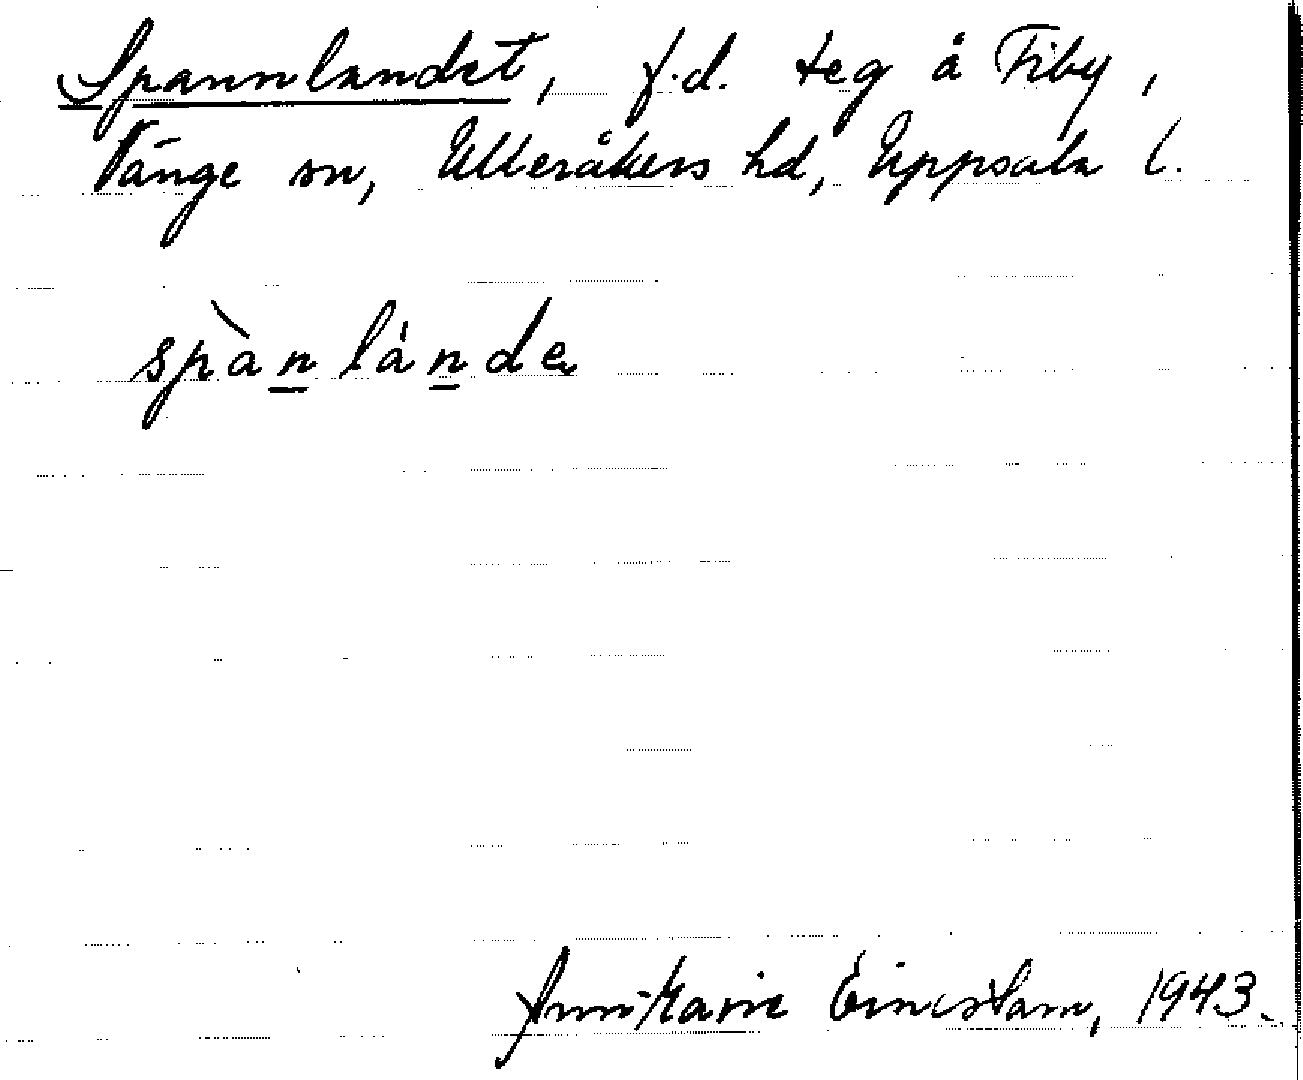 Spannlandet, f.d. teg å Fiby,
Vänge sn, Ulleråkers hd, Uppsala l.
spànlánde
Ann-Marie 1943.